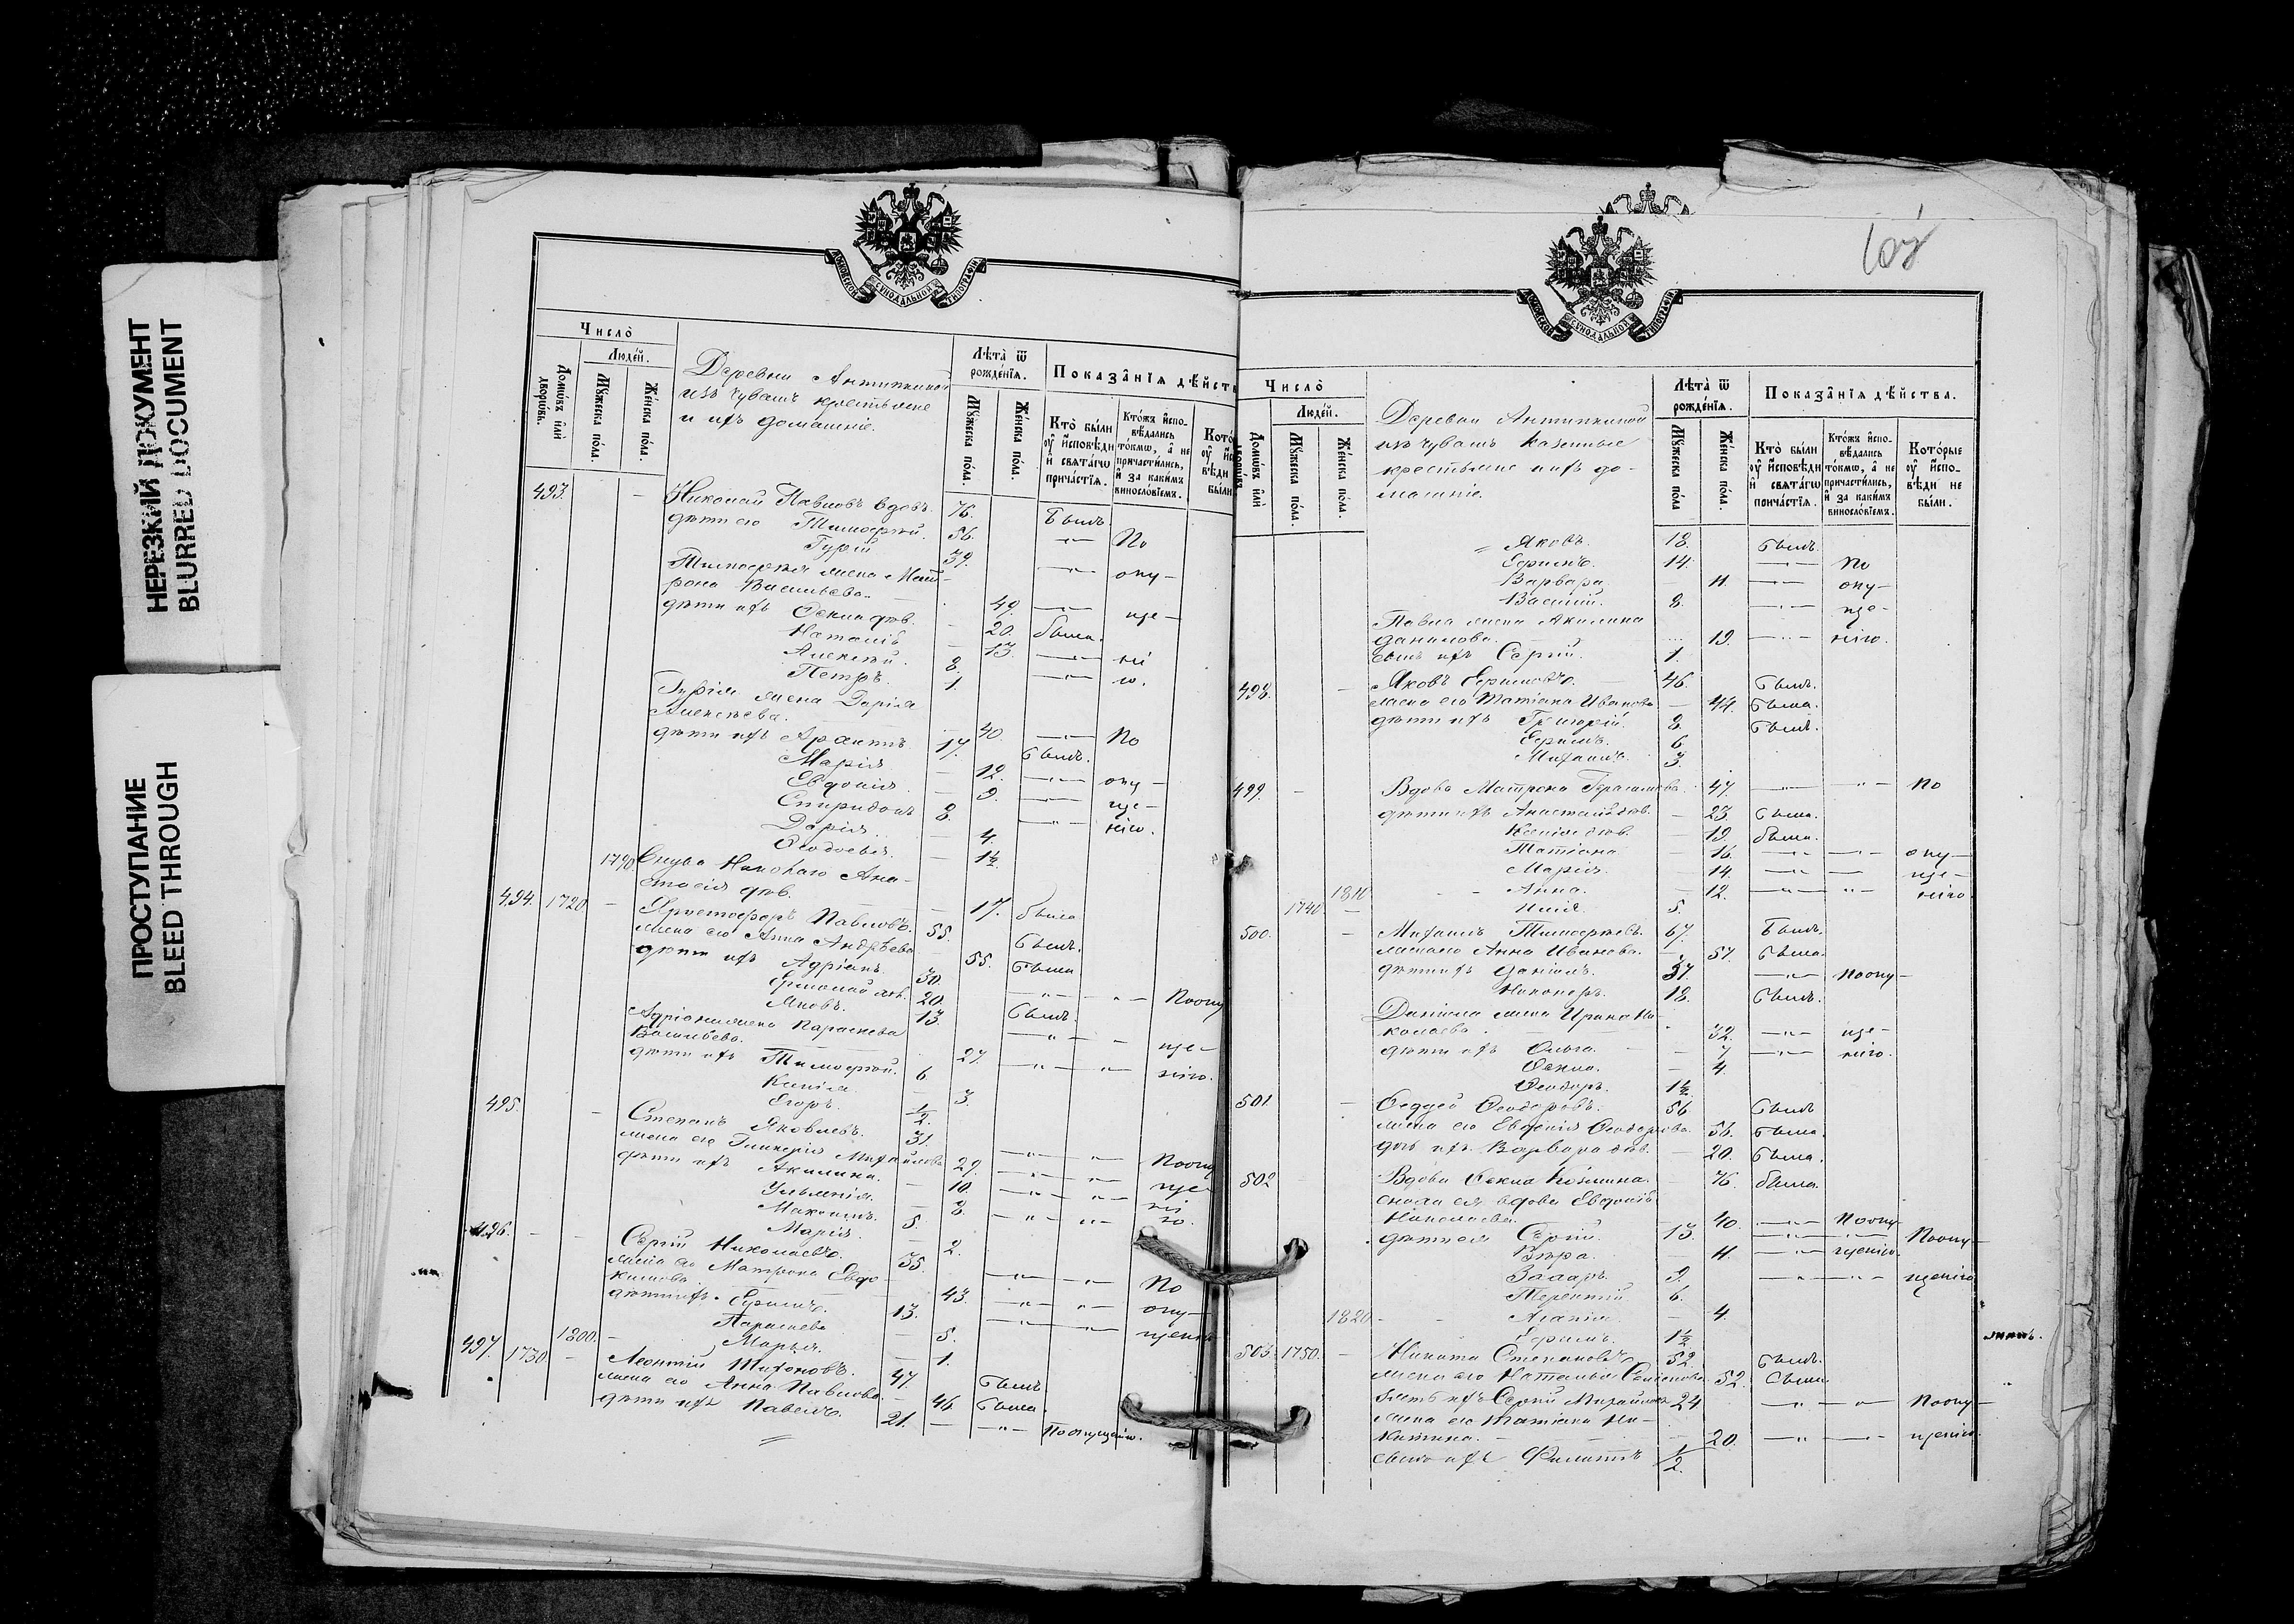 НЕРЕЗКИЙ ДОКУМЕНТ
BLURRED DOCUMENT
ПРОСТУПАНИЕ
BLEED THROUGH
МОСКОВСКОЙ СѴНОДАЛЬНОЙ ТИПОГРАФІИ
Число̀
Людей.
Домѡвъ и҆лѝ дворѡвъ.
Мꙋжеска пола.
Женска пола.
Деревни Антипкиной
изъ чувашъ крестьяне
и ихъ домашніе.
Лѣта̀ ѿ рожденїѧ.
Мꙋжеска пола.
Женска пола.
Показа̑нїѧ дѣйств
Кто̀ были оу҆ и҆сповѣди и҆ свѧтагѡ причастїѧ.
Ктожъ и҆сповѣдались токмѡ, а҆ не причастились, и҆ за какимъ винословїемъ.
493. Николай Павловъ вдовъ. 76. Былъ
дѣти его Тимоѳей. 56. —"— По
Гурій 39. —"— опу-
Тимоѳея жена Мат-
рона Васильева. 49. —"— ще-
дѣти ихъ Ѳекла дѣв. 20. была.
Наталія 13. —"— ні
Алексѣй. 8. —"— ю.
Петръ. 1.
Гурія жена Дарія
Алексѣева. 40. —"— По
дѣти ихъ 17. былъ.
Марія 12. —"— опу-
Евдокія 9. —"— ще-
Спиридонъ 8. —"— нію.
Дарія 4.
Ѳеодосія 1½
1790. Николая Ана-
стасія дѣв. 17. была
494. 1720. Христофоръ Павловъ. 55. былъ.
жена его Анна Андреева 55. была
дѣти ихъ Адріанъ. 30. —"— —"— Поопу
Ермолай 20. былъ.
Яковъ. 13. —"— —
Адріана жена Параскева
Васильева. 27. —"— —"— ще-
дѣти ихъ Тимоѳей. 6. нію.
Ксенія 3.
Егоръ. ½.
495. Степанъ Яковлевъ. 31. —"— —"— Поопу
жена его Гликерія Михайлова 29. —"— —"— ще
дѣти ихъ Акилина. 10. —"— —"— ні
Ульянія. 8. —"— —"— ю.
Максимъ. 5.
Марія. 2.
496. Сергій Николаевъ. 35. —"— —"— По
жена его Матрона Евдо-
кимова 43. —"— —"— опу-
дѣти ихъ Ефимъ. 13. —"— —"— щенію
Параскева 5.
1800. Марья. 1.
497. 1730. Леонтій Тихоновъ. 47. былъ
жена его Анна Павлова 46 была.
дѣти ихъ Павелъ. 21. —"— По опущенію.
МОСКОВСКОЙ СѴНОДАЛЬНОЙ ТИПОГРАФІИ
Число̀
Людей.
Домѡвъ и҆лѝ дворѡвъ
Мꙋжеска пола.
Женска пола.
Деревни Антипкиной
изъ чувашъ казенные
крестьяне и ихъ до-
машніе.
Лѣта̀ ѿ рожденїѧ.
Мꙋжеска пола
Женска пола.
Показа̑нїѧ дѣйства.
Кто̀ были оу҆ и҆сповѣди и҆ свѧтагѡ причастїѧ.
Ктожъ и҆сповѣдались токмѡ, а҆ не причастились, и҆ за какимъ винословїемъ.
Которые оу҆ и҆сповѣди не были.
Яковъ. 18. былъ.
Ефимъ. 14. —"— По
Варвара 11. —"— опу-
Василій. 8. —"— ще-
Павла жена Акилина
Данилова. 19. —"— нію.
сынъ ихъ Сергій. 1.
498. Яковъ Ефимовъ. 46. былъ.
жена его Татіана Иванова 44. была.
дѣти ихъ Григорій. 8. былъ.
Ефимъ. 6.
Михаилъ. 3.
499. Вдова Матрона Герасимова. 47. —"— —"— По
дѣти ихъ Анастасія дѣв. 23. была.
Ксенія дѣв. 19. была.
Татіана 16. —"— —"— опу-
Марія. 14. —"— — ще-
1810. Анна. 12. —"— —"— нію
1740. Илія. 5.
500. Михаилъ Тимоѳеевъ. 67. былъ.
жена его Анна Иванова. 57. была.
дѣти ихъ Даніилъ. 37 —"— Поопу-
Никоноръ. 18. былъ.
Даніила жена Ирина Ни-
колаева. 32. —"— ще-
дѣти ихъ Ольга. 7 —"— нію.
Ѳекла. 4.
Ѳеодоръ. 1½
501. Ѳаддей Ѳеодоровъ. 56 былъ
жена его Евфимія Ѳеодорова. 56. была.
дочь ихъ Варвара дѣв. 20. была.
502 Вдова Ѳекла Козмина. 76. была.
сноха ея вдова Евдокія
Николаева. 40. —"— Поопу
дѣти ея Сергій. 13. —"— —"— Поопу-
Вѣра. 11. —"— щенію.
Захаръ. 9. —"— —"— щенію
Терентій 6.
1820. Агапія 4.
Ефимъ. 1½
503. 1750. Никита Степановъ 52. былъ.
жена его Наталья 52. была
зять ихъ Сергій Михайловъ 24 —"— —"— Поопу-
жена его Татіана Ни-
китина. 20. —"— —"— щенію
сынъ ихъ Филиппъ ½.